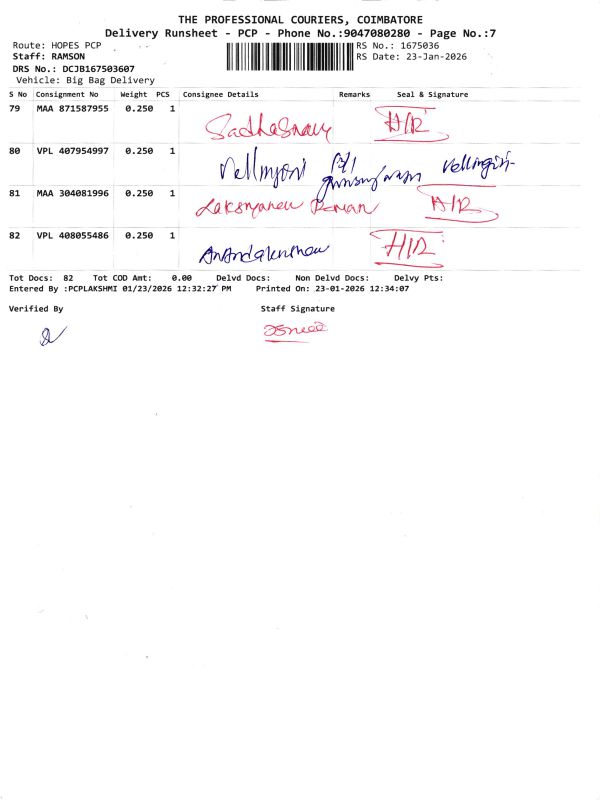 THE PROFESSIONAL COURIERS, COIMBATORE
Delivery Runsheet - PCP - Phone No.:9047080280 - Page No.:7
Route: HOPES PCP RS No.: 1675036
Staff: RAMSON RS Date: 23-Jan-2026
DRS No.: DCJB167503607
Vehicle: Big Bag Delivery
S No Consignment No Weight PCS Consignee Details Remarks Seal & Signature
79 MAA 871587955 0.250 1 H/R
80 VPL 407954997 0.250 1
81 MAA 304081996 0.250 1 H/R
82 VPL 408055486 0.250 1 H/R
Tot Docs: 82 Tot COD Amt: 0.00 Delvd Docs: Non Delvd Docs: Delvy Pts:
Entered By :PCPLAKSHMI 01/23/2026 12:32:27 PM Printed On: 23-01-2026 12:34:07
Verified By Staff Signature